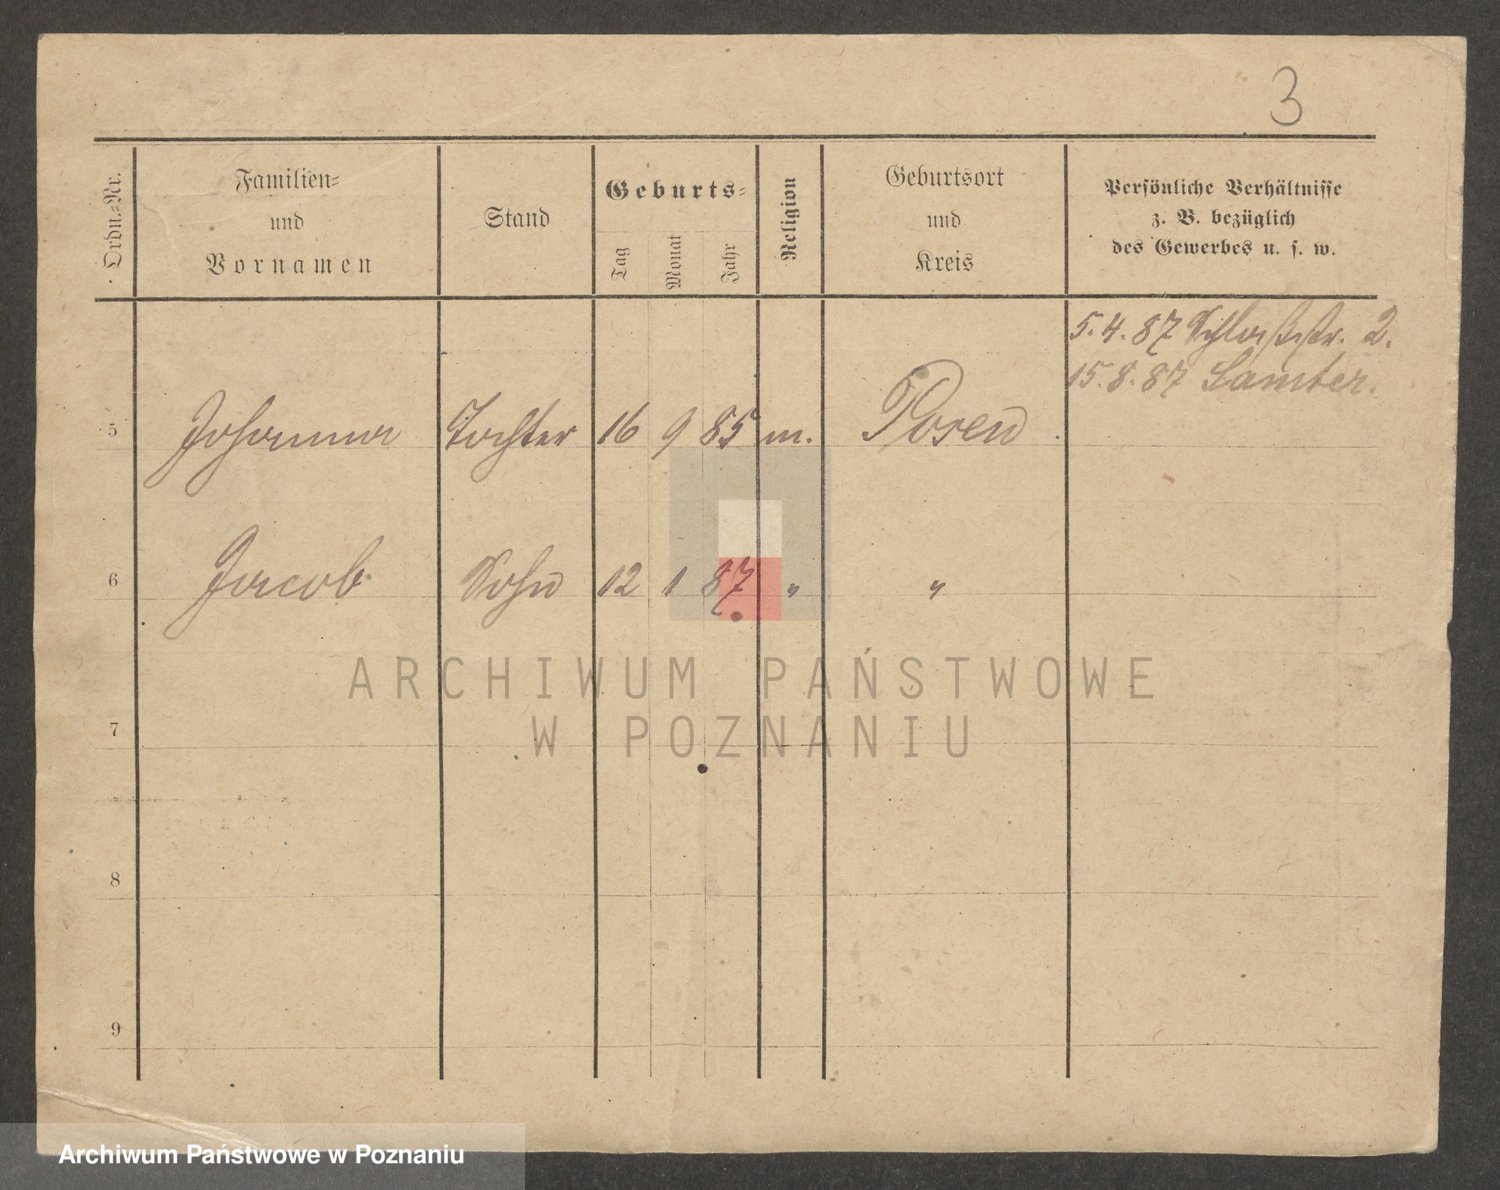 3
Ordn.-Nr.
Familien-
und
Vornamen
Stand
Geburts-
Tag
Monat
Jahr
Religion
Geburtsort
und
Kreis
Persönliche Verhältnisse
z. B. bezüglich
des Gewerbes u. s. w.
5.4.87 Schloßstr. 2.
15.8.87 Samter.
5 Johanna Tochter 16 9 85 m. Posen
6 Jacob Sohn 12 1 87 " "
7
8
9
ARCHIWUM PAŃSTWOWE
W POZNANIU
Archiwum Państwowe w Poznaniu